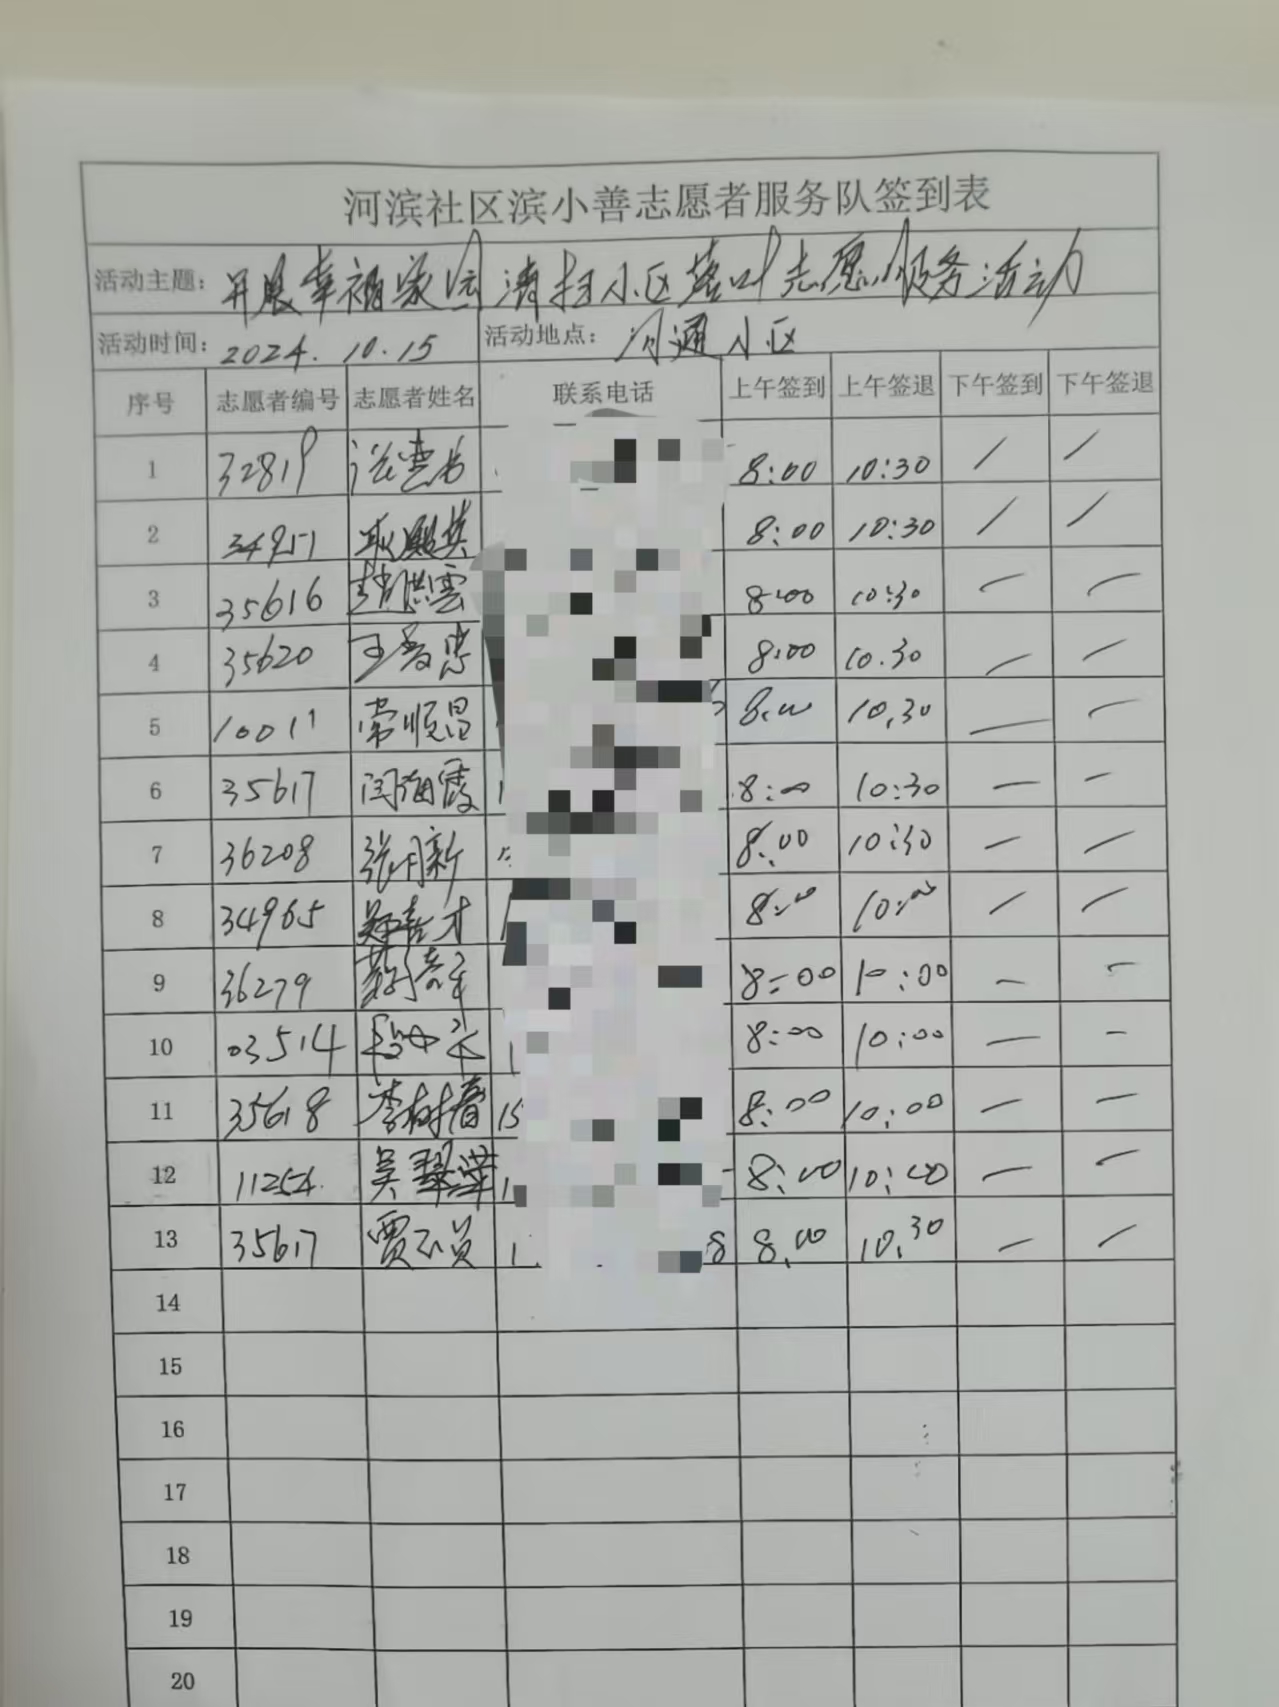 河滨社区滨小善志愿者服务队签到表
活动主题：开展幸福家园清扫小区落叶志愿服务活动
活动时间：2024.10.15 活动地点：河通小区
序号 志愿者编号 志愿者姓名 联系电话 上午签到 上午签退 下午签到 下午签退
1 32819 8:00 10:30 / /
2 34951 8:00 10:30 / /
3 35616 赵洪雲 8:00 10:30 — —
4 35620 王秀忠 8:00 10.30 — —
5 10011 常顺昌 8.00 10.30 — —
6 35617 闫海霞 1 8:00 10:30 — —
7 36208 张月新 8:00 10:30 — —
8 34965 郑喜才 8:00 10:00 — —
9 36279 8:00 10:00 — —
10 03514 1 8:00 10:00 — —
11 35618 李树春 15 8:00 10:00 — —
12 11254. 吴翠萍 1 8:00 10:00 — —
13 35617 贾不员 1 8 8.00 10.30 — —
14
15
16
17
18
19
20